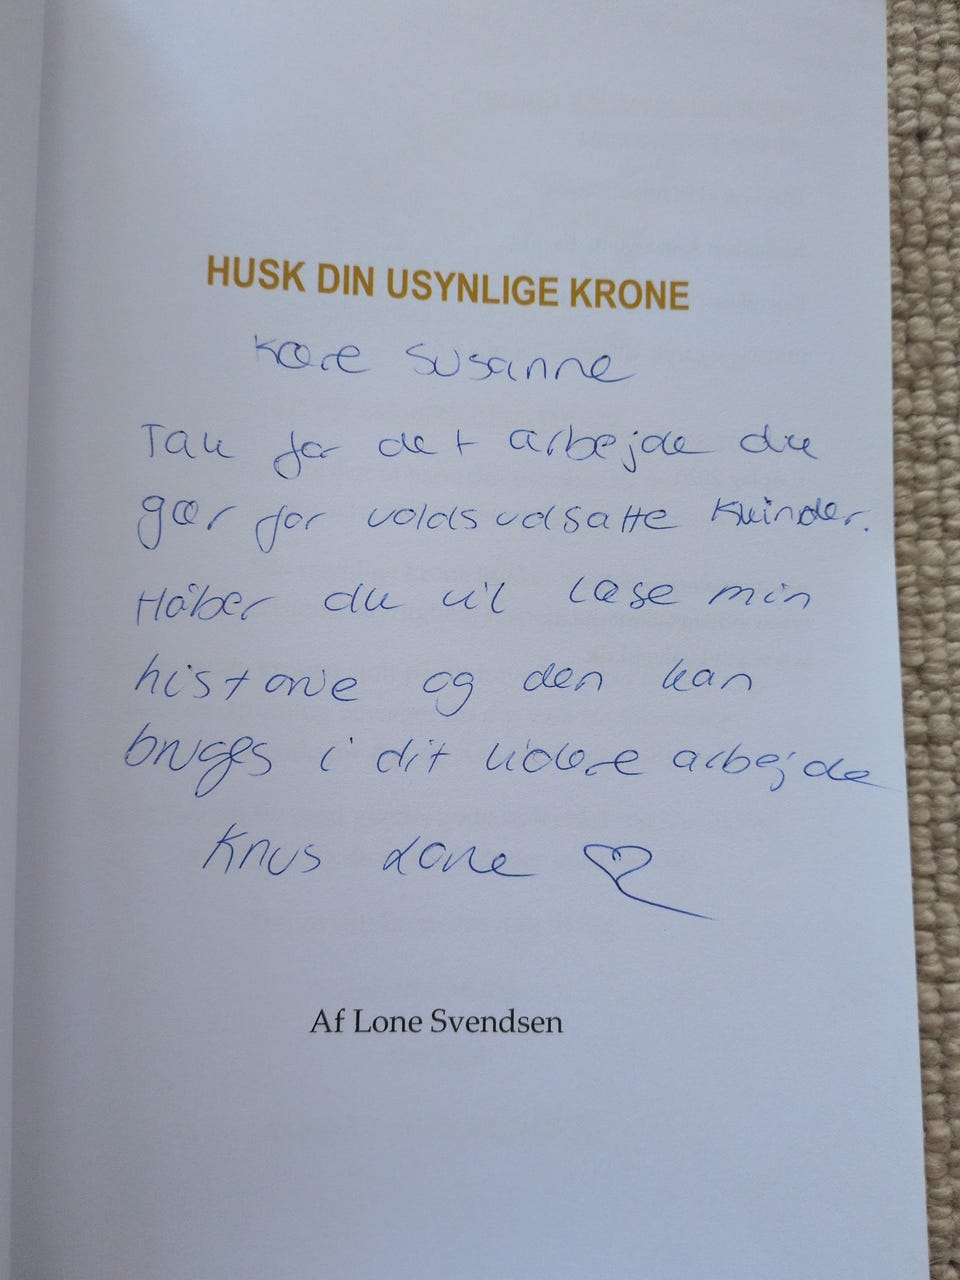 HUSK DIN USYNLIGE KRONE
Kære Susanne
Tak for det arbejde du
gør for voldsudsatte kvinder.
Håber du vil læse min
historie og den kan
bruges i dit videre arbejde
Knus Lone
Af Lone Svendsen